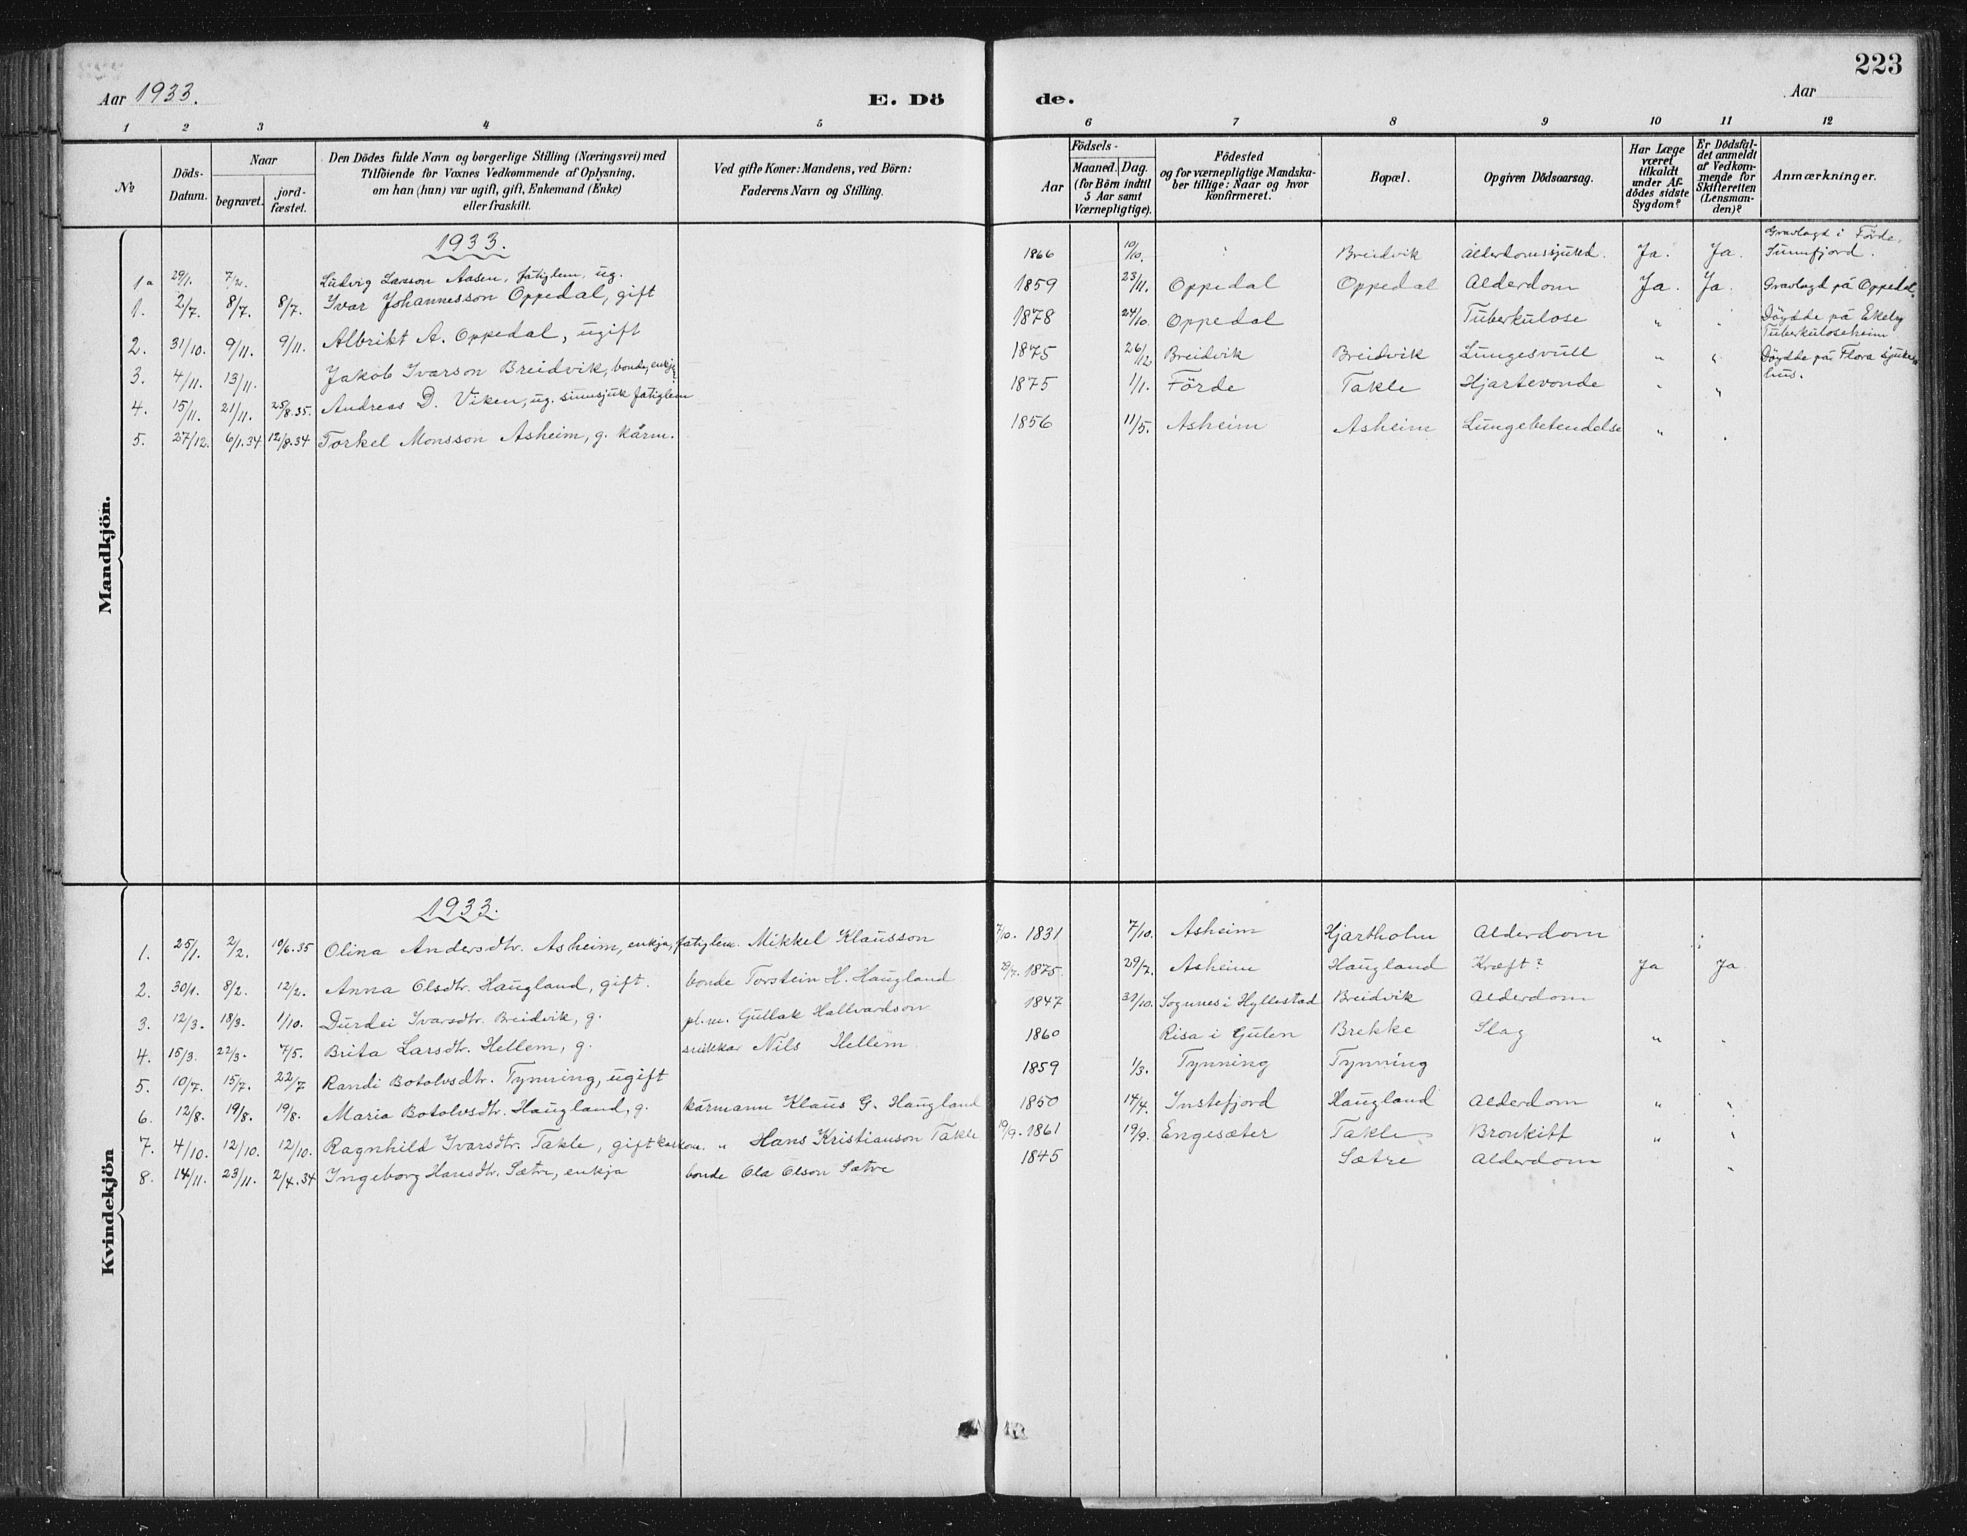 223
Aar 1933.
E. Dö de.
Aar
1 2 3 4 5 6 7 8 9 10 11 12
No
Döds-Datum.
Naar
begravet.
jord-fæstet.
Den Dödes fulde Navn og borgerlige Stilling (Næringsvei) med
Tilföiende for Voxnes Vedkommende af Oplysning,
om han (hun) var ugift, gift, Enkemand (Enke)
eller fraskilt.
Ved gifte Koner: Mandens, ved Börn:
Faderens Navn og Stilling.
Födsels-
Aar
Maaned. Dag.
(for Börn indtil
5 Aar samt
Værnepligtige).
Födested
og for værnepligtige Mandska-
ber tillige: Naar og hvor
konfirmeret.
Bopæl.
Opgiven Dödsaarsag.
Har Læge
været
tilkaldt
under Af-
dödes sidste
Sygdom?
Er Dödsfal-
det anmeldt
af Vedkom-
mende for
Skifteretten
(Lensman-
den)?
Anmærkninger.
Mandkjön.
1933.
1a 29/1. 7/2. Ludvig Larson Aasen, fatiglem, ug. 1866 10/10. Breidvik Alderdomssjukd. Ja. Ja. Gravlagd i Förde, Sunnfjord.
1. 2/7. 8/7. 8/7. Ivar Johannesson Oppedal, gift 1859 23/11. Oppedal Oppedal Alderdom Ja. Ja. Gravlagd på Oppedal.
2. 31/10. 9/11. 9/11. Albrikt A. Oppedal, ugift 1878 24/10. Oppedal Tuberkulose " " Döydde på Ekely Tuberkuloseheim
3. 4/11. 13/11. Jakob Ivarson Breidvik, bonde, 1875 26/12 Breidvik Breidvik Lungesvull " " Döydde på Flora sjukehus.
4. 15/11. 21/11. 25/8.35. Andreas D. Viken, ug. sinnsjuk fatiglem 1875 1/1. Förde Takle Hjartevonde " "
5. 27/12. 6/1.34 12/8.34 Torkel Monsson Asheim, g. kårm. 1856 11/5. Asheim Asheim Lungebetendelse " "
Kvindekjön
1933.
1. 25/1. 2/2. 10/6.35 Olina Andersdtr. Asheim, enkja, fatiglem. Mikkel Klausson 7/10. 1831 7/10. Asheim Hjartholm Alderdom
2. 30/1. 8/2. 12/2. Anna Olsdtr. Haugland, gift. bonde Torstein H. Haugland 29/7. 1875. 29/7. Asheim Haugland Kræft? Ja Ja
3. 12/3. 18/3. 1/10. Durdei Ivarsdtr. Breidvik, g. pl.m. Gullak Hallvardson 1847 31/10. Sognnes i Hyllestad Breidvik Alderdom
4. 15/3. 22/3. 7/5. Brita Larsdtr. Hellem, g. snikkar Nils Hellem 1860 Risa i Gulen Brekke Slag " "
5. 10/7. 15/7. 22/7 Randi Botolvsdtr. Tynning, ugift 1859 1/3. Tynning Tynning
6. 12/8. 19/8. 19/8. Maria Botolvsdtr. Haugland, g. kårmann Klaus G. Haugland 1850 14/4. Instefjord Haugland Alderdom " "
7. 4/10. 12/10. 12/10. Ragnhild Ivarsdtr. Takle, gift " Hans Kristianson Takle 19/9. 1861 19/9. Engesæter Takle Bronkitt " "
8. 14/11. 23/11. 2/4.34 Ingeborg Hansdtr. Sætre, enkja bonde Ola Olson Sætre 1845 Sætre Alderdom "